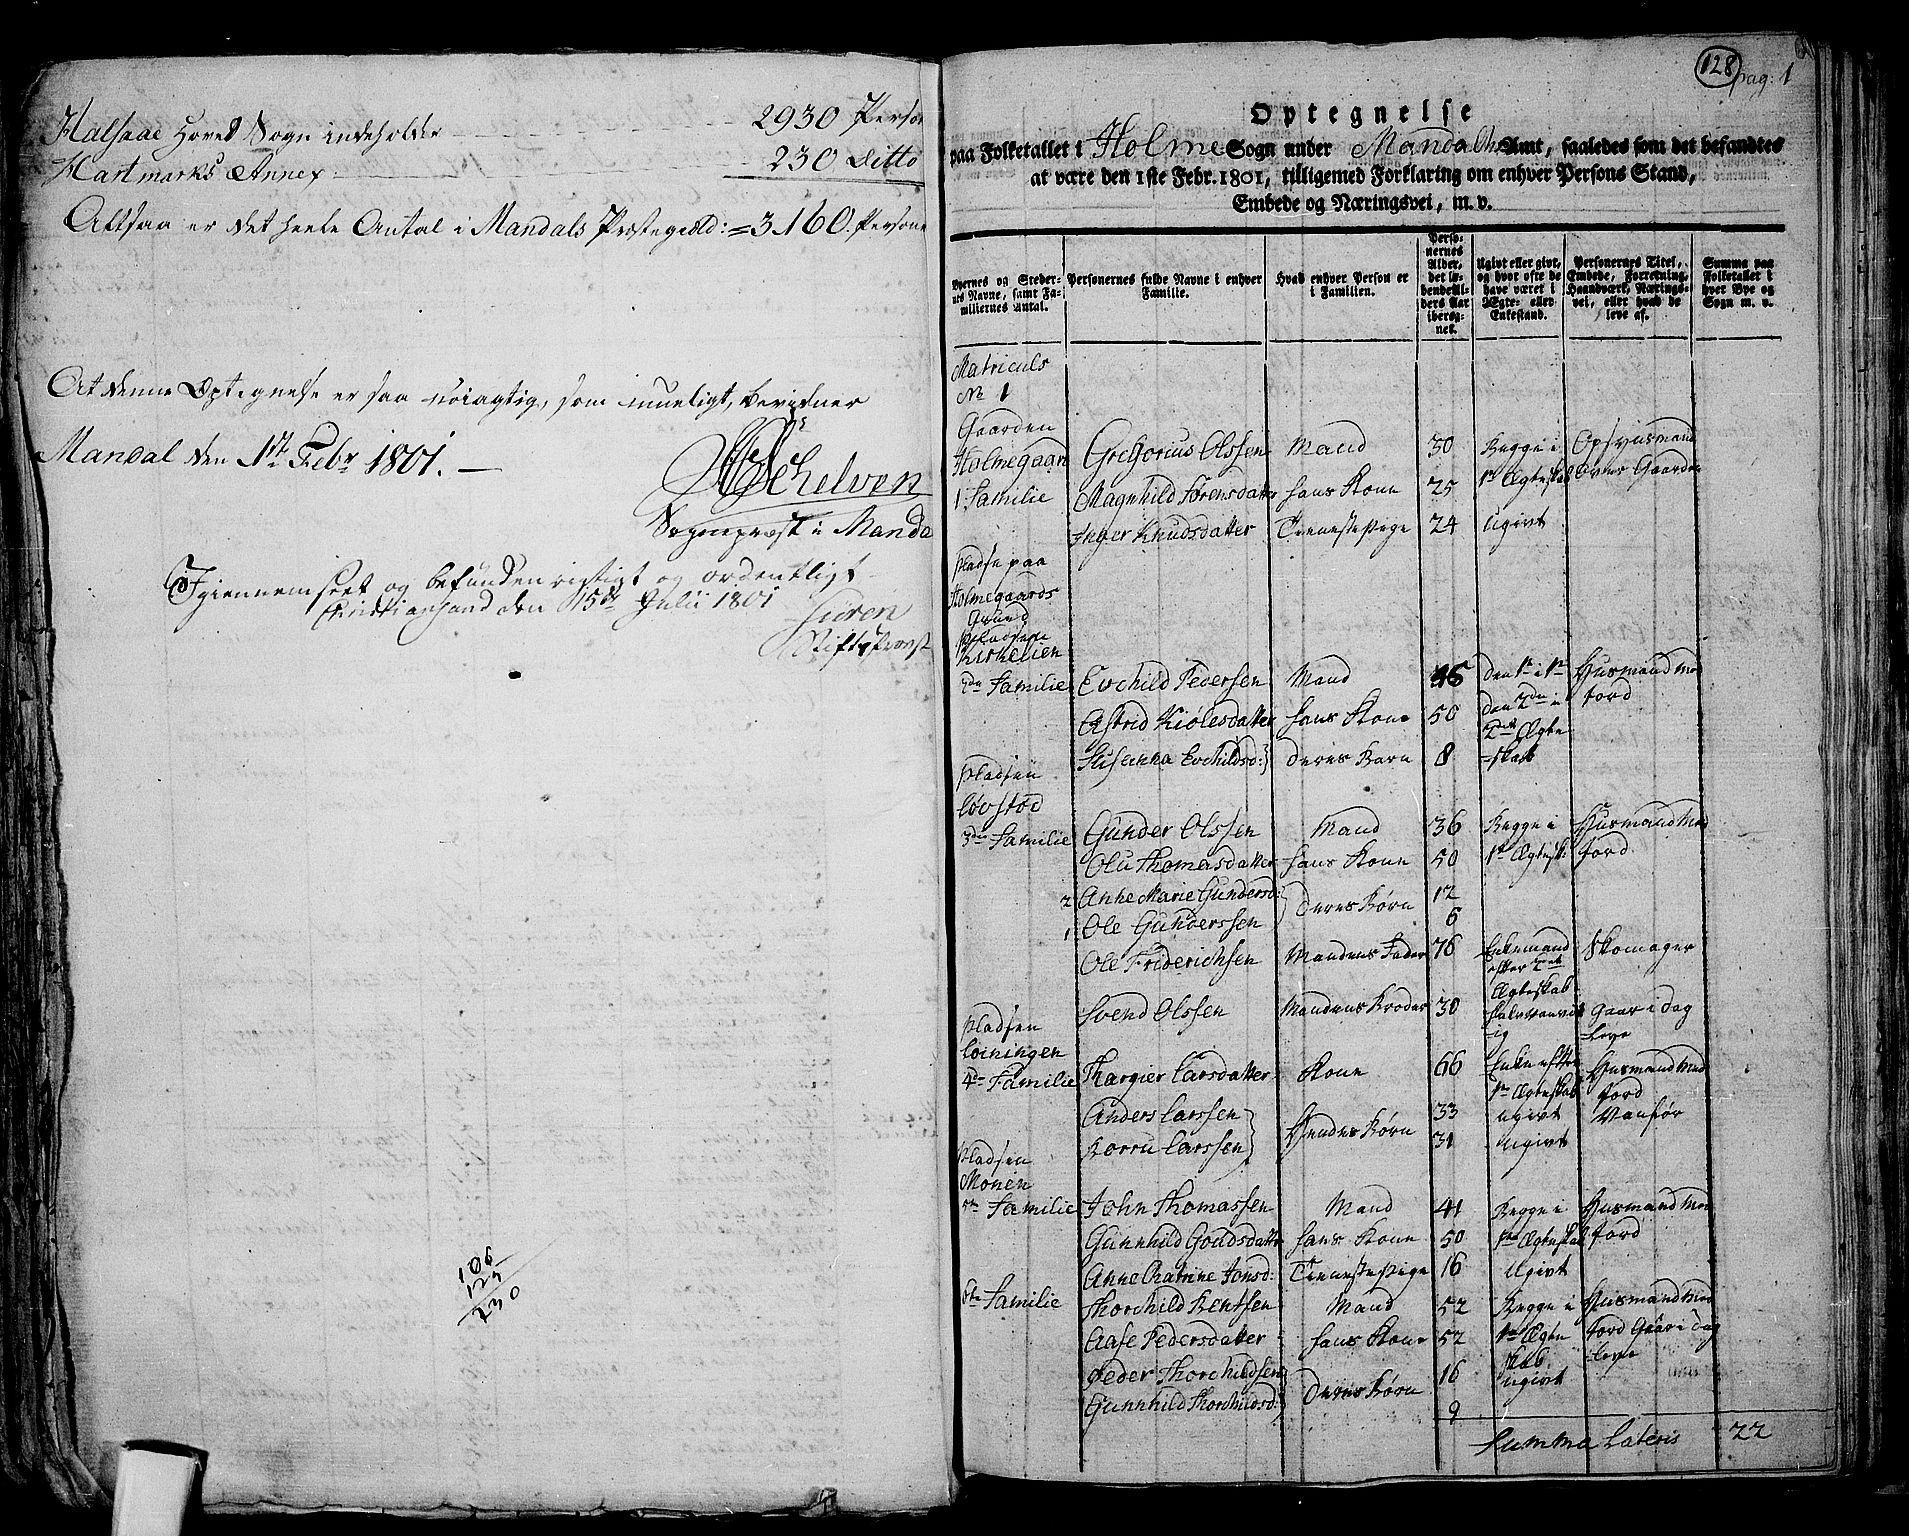 Halsaae Hoved Sogn indeholder 2930 Person
Hartmarks Annex 230 Ditto
Altsaa er det heele Antal i Mandals Præstegield: = 3160. Persone
At denne Optegnelse er saa nöiagtig, som mueligt, bevidner
Mandal den 1ste Febr 1801.
Schelven
Sognepræst i Manda
Igiennemseet og befunden rigtigt og ordentligt
Christiansand den 15de Julii 1801
Stiftsprovst
106
230
128
pag: 1
Optegnelse
paa Folketallet i Holme Sogn under Mandahls Amt, saaledes som det befandtes
at være den 1ste Febr. 1801, tilligemed Forklaring om enhver Persons Stand,
Embede og Næringsvei, m. v.
Byernes og Stedernes Navne, samt Familiernes Antal.
Personernes fulde Navne i enhver Familie.
Hvad enhver Person er i Familien.
Personernes Alder, det løbende Alders Aar iberegnet.
Ugivt eller givt, og hvor ofte de have været i Ægte- eller Enkestand.
Personernes Titel, Embede, Forretning, Haandværk, Næringsvei, eller hvad de leve af.
Summa paa Folketallet i hver Bye og Sogn m. v.
Matriculs
No 1
Gaarden
Holmegaard Gregorius Olssen Mand 30 Begge i Opsynsmand
1 Familie Magnhild Sørensdatter hans Kone 25 1ste Ægteskab over Gaarden
Inger Knudsdatter Tienestepige 24 Ugivt
Pladse paa
Holmegaards
Grund
Pladsen
Kirkelien
2den Familie Evchild Pedersen Mand 46 Den 1te i 1te Huusmand med
Astrid Kiølesdatter hans Kone 50 Den 2den i Jord
2det Ægte
Susanna Evchildsd: Deres Barn 8 -skab
Pladsen
Løvstød
3die Familie Gunder Olssen Mand 36 Begge i Huusmand Med
Olu Thomasdatter hans Kone 50 1ste Ægtesk: Jord
2 Anne Marie Gundersd: Deres Børn 12
1 Ole Gunderssen 6
Ole Friderichsen Mandens Fader 76 Enkemand Skomager
efter 2det
Ægteskab
Svend Olssen Mandens Broder 30 Gaar i Dag
Pladsen
-leye
Løiningen
4de Familie Thargier Larsdatter Kone 66 Enke efter Huusmand Med
1te Ægteskab Jord
Anders Larssen Hendes Børn 33 ugivt Vanför
Korru Larssen 31 Ugivt
Pladsen
Monen
5te Familie John Thomassen Mand 41 Begge i Huusmand Med
Gunnhild Goudsdatter hans Kone 50 1te Ægteskab Jord
Anne Chatrine Jonsd: Tienestepige 16 Ugivt
6te Familie Thorchild Bentsen Mand 52 Begge i Huusmand Med
Aase Pedersdatter hans Kone 52 1te Ægte Jord Gaar i Dag
skab -leye
Peder Thorchildsen Deres Børn 16 ugivt
Gunnhild Thorchildsd: 9
Summa Lateris 22